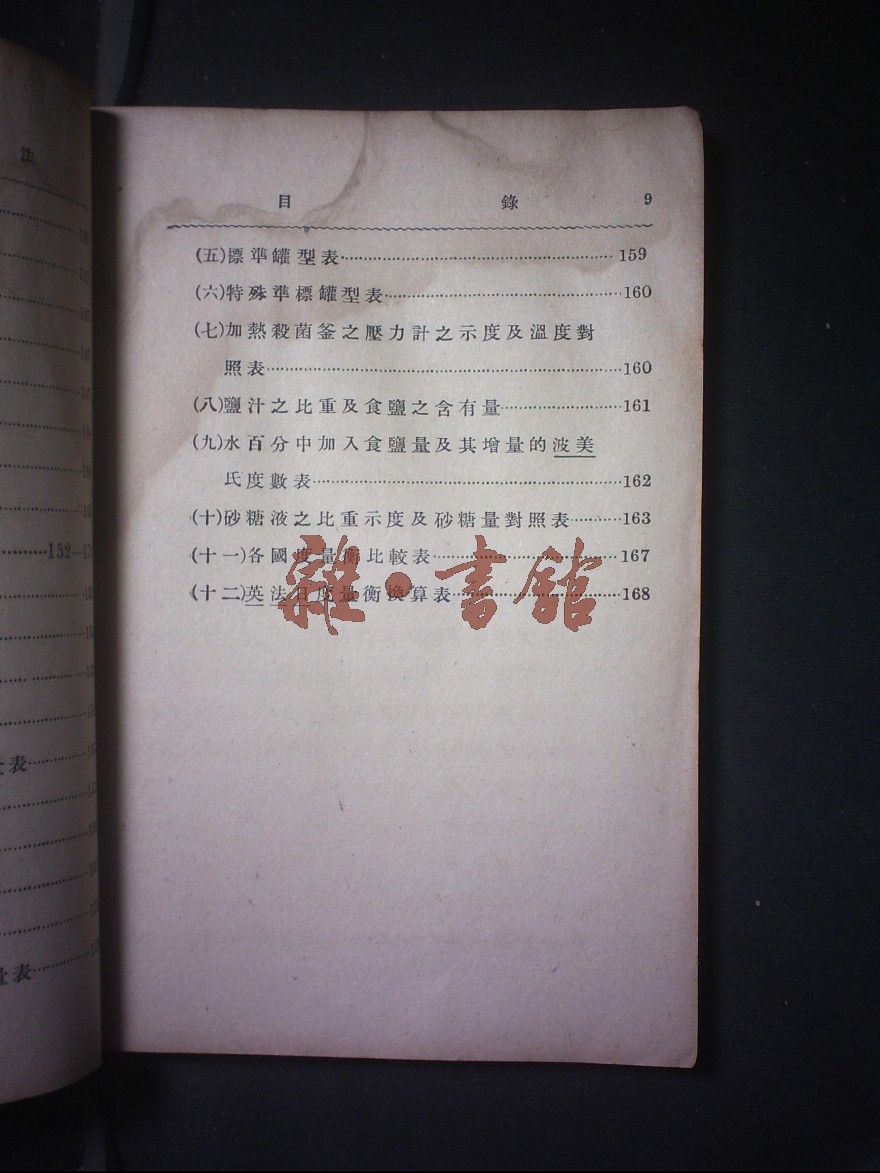 目錄 9
(五)標準罐型表 159
(六)特殊準標罐型表 160
(七)加熱殺菌釜之壓力計之示度及溫度對
照表 160
(八)鹽汁之比重及食鹽之含有量 161
(九)水百分中加入食鹽量及其增量的波美
氏度數表 162
(十)砂糖液之比重示度及砂糖量對照表 163
(十一)各國度量衡比較表 167
(十二)英法日度量衡換算表 168
雜·書館
法
152—
表
表